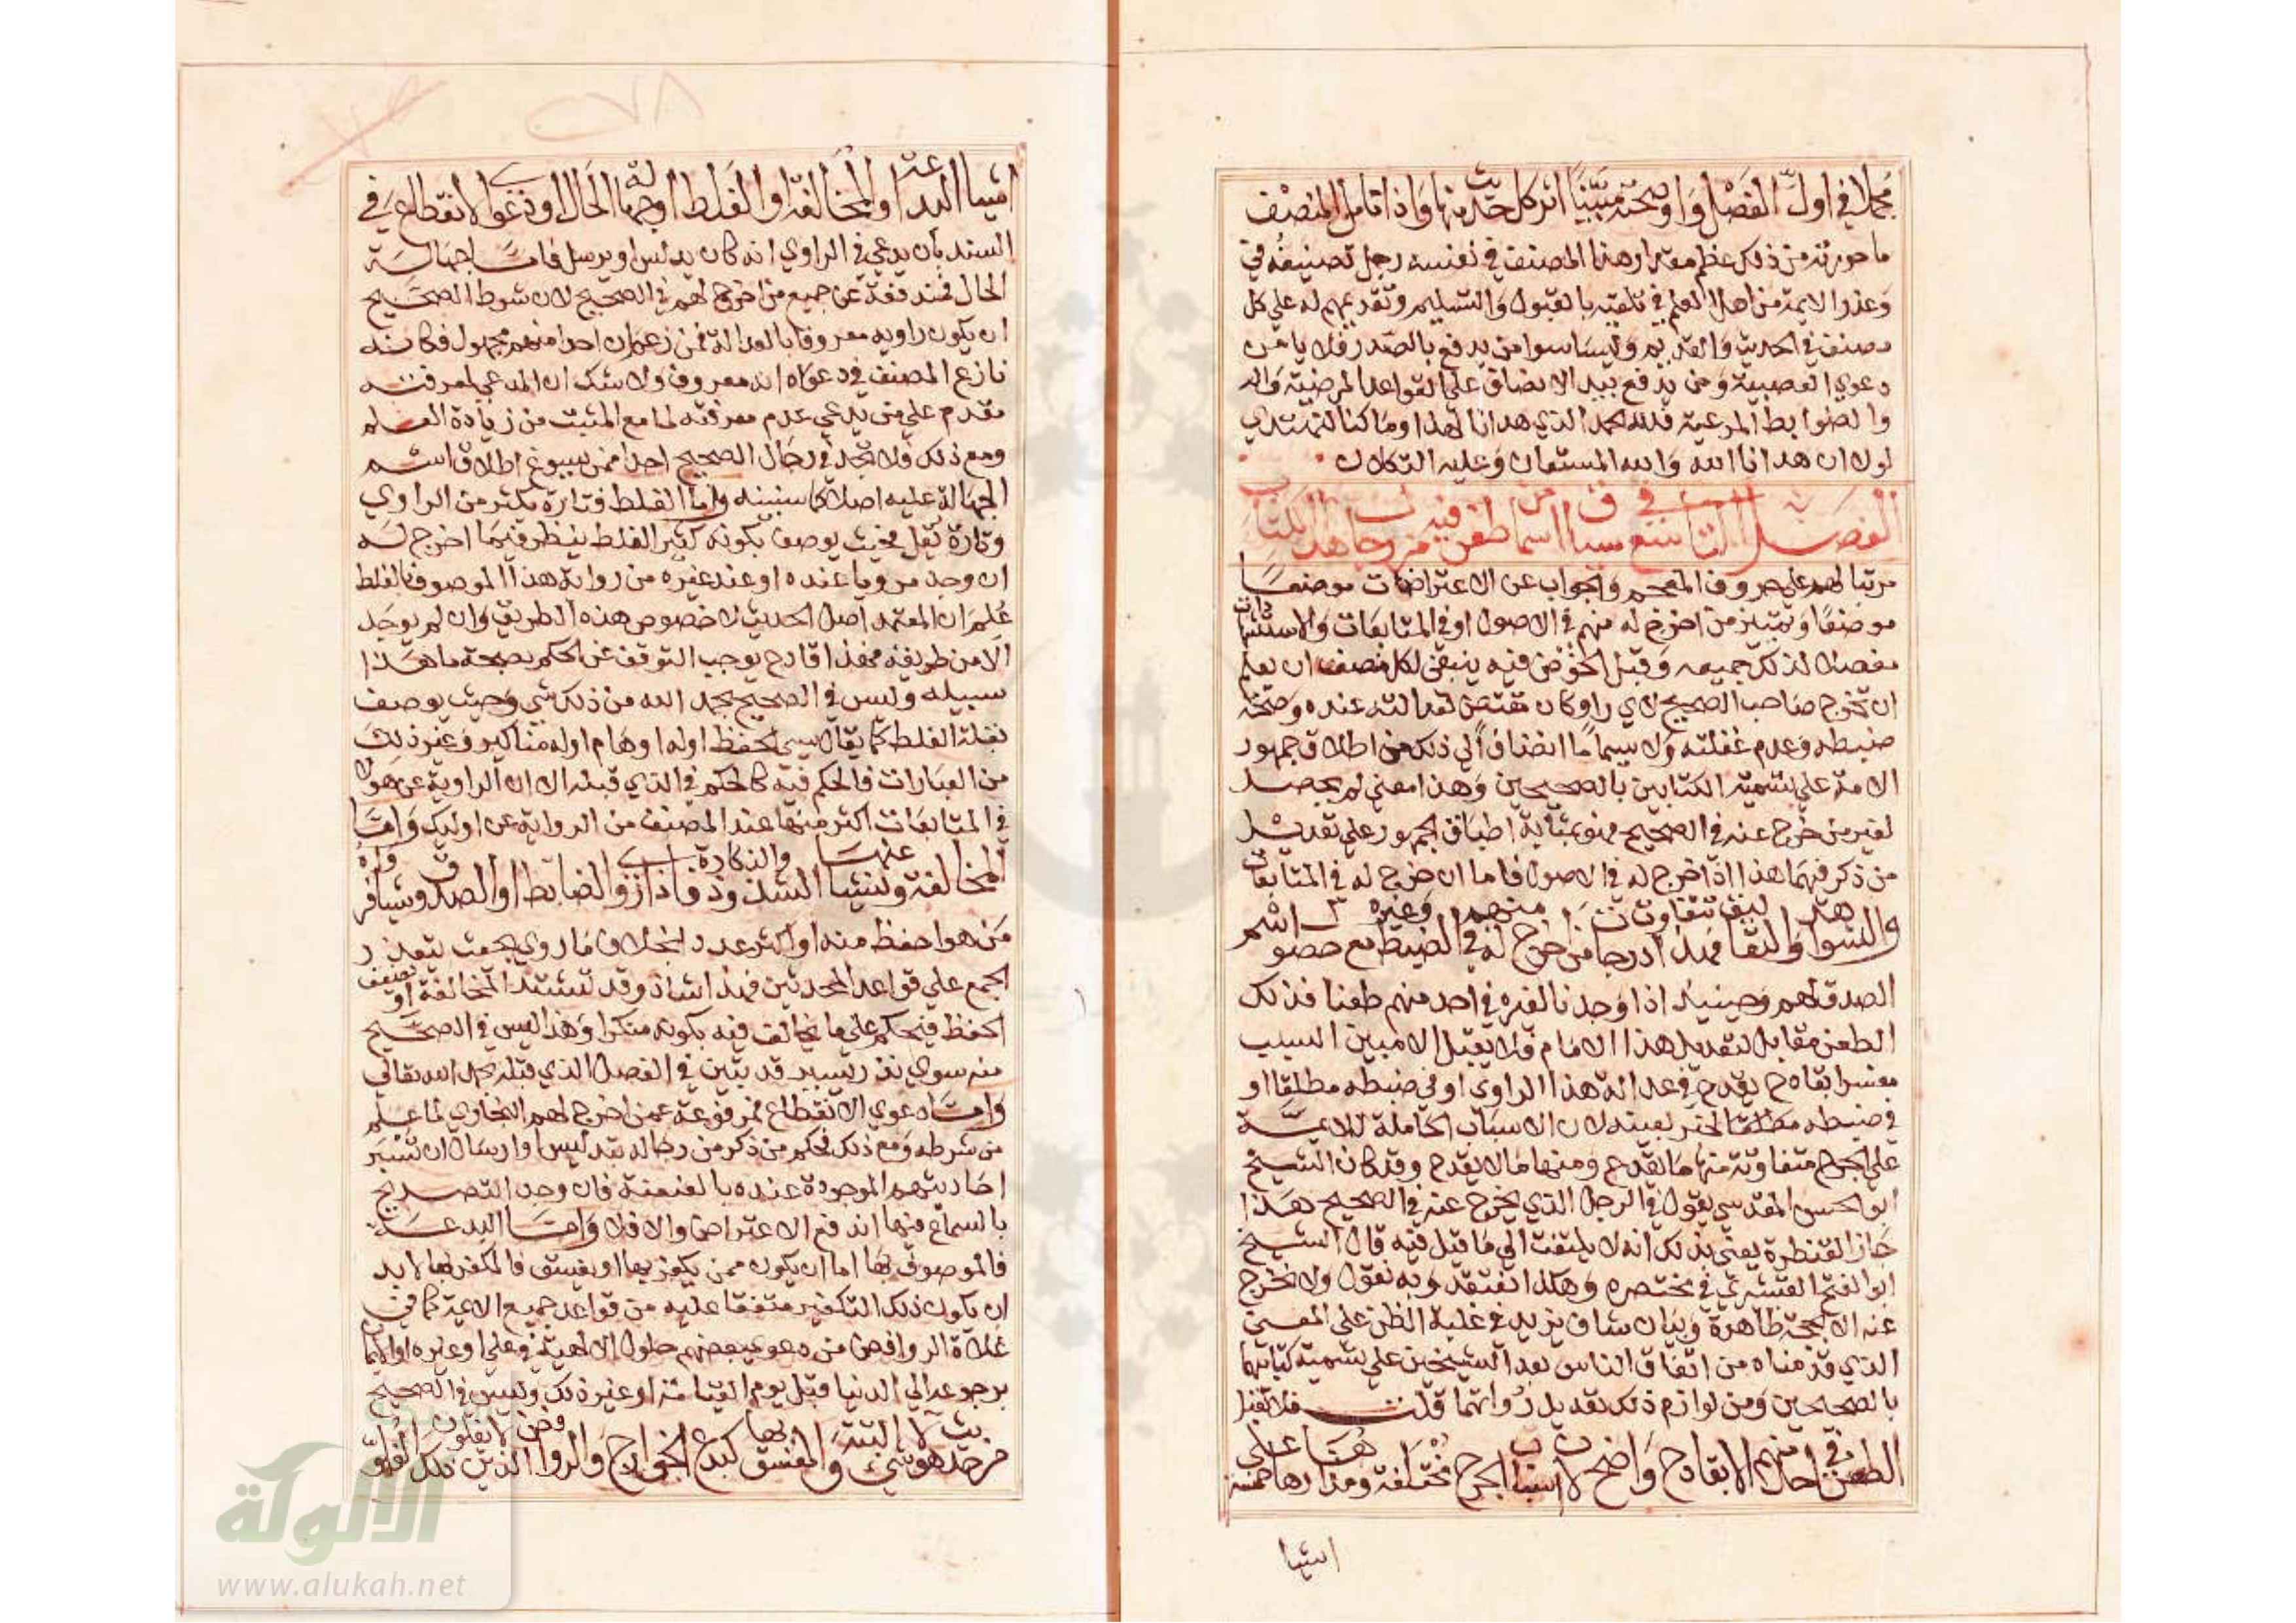 مجملا في اول الفصل واوضحته مبينا اثر كل حديث منها واذا تامل المنصف
ما حررته من ذلك عظم مقدار هذا المصنف في نفسه وجل تصنيفه في
وعذر الايمة من اهل العلم في تلقيه بالقبول والتسليم وتقديمهم له علي كل
مصنف في الحديث والقديم وليسا سوا من يدفع بالصدر فلا يامن
دعوي العصبية ومن يدفع بيد الانصاف علي القواعد المرضية وال
والضوابط المرعية فلله الحمد الذي هدانا لهذا وما كنا لنهتدي
لولا ان هدانا الله والله المستعان وعليه التكلان
الفصل التاسع في سياق اسما من طعن فيه من رجال هذا الكتاب
مرتبا لهم علي حروف المعجم والجواب عن الاعتراضات موضعا
موضعا وتمييز من اخرج له منهم في الاصول او في المتابعات والاستشهادات
مفصلا لذلك جميعه وقبل الخوض فيه ينبغي لكل منصف ان يعلم
ان تخرج صاحب الصحيح لاي راو كان مقتض لعدالته عنده وصحة
ضبطه وعدم غفلته ولا سيما ما انضاف الي ذلك من اطلاق جمهور
الامة علي تسمية الكتابين بالصحيحين وهذا معني لم يحصل
لغير من خرج عنه في الصحيح فهو بمثابة اطباق الجمهور علي تعديل
من ذكر فيهما هذا اذا اخرج له في الاصول فاما ان خرج له في المتابعات
والشواهد والتعاليق فهذا تتفاوت درجات من اخرج له منهم في الضبط وغيره مع حصول اسم
الصدق لهم وحينيذ اذا وجدنا لغيره في احد منهم طعنا فذلك
الطعن مقابل لتعديل هذا الامام فلا يقبل الا مبين السبب
مفسرا بقادح يقدح في عدالة هذا الراوي او في ضبطه مطلقا او
في ضبطه مطلقا لخبر بعينه لان الاسباب الحاملة للايمة
علي الجرح متفاوتة منها ما يقدح ومنها ما لا يقدح وقد كان الشيخ
ابو الحسن المقدسي يقول في الرجل الذي يخرج عنه في الصحيح هذا
جاز القنطرة يعني بذلك انه لا يلتفت الي ما قيل فيه قال الشيخ
ابو الفتح القشيري في مختصره وهكذا نعتقد وبه نقول ولا نخرج
عنه الا بحجة ظاهرة وبيان شاف يزيد في غلبة الظن علي المعني
الذي قدمناه من اتفاق الناس بعد الشيخين علي تسمية كتابيهما
بالصحيحين ومن لوازم ذلك تعديل رواتهما قلت فلا يقبل
الطعن في احد منهم الا بقادح واضح لان اسباب الجرح مختلفة ومدارها هنا علي خمسة
اشيا
اشيا البدعة او المخالفة او الغلط او جهالة الحال او دعوي الانقطاع في
السند بان يدعي في الراوي انه كان يدلس او يرسل فاما جهالة
الحال فمندفعة عن جميع من اخرج لهم في الصحيح لان شرط الصحيح
ان يكون راويه معروفا بالعدالة فمن زعم ان احدا منهم مجهول فكانه
نازع المصنف في دعواه انه معروف ولا شك ان المدعي لمعرفته
مقدم علي من يدعي عدم معرفته لما مع المثبت من زيادة العلم
ومع ذلك فلا تجد في رجال الصحيح احدا ممن يسوغ اطلاق اسم
الجهالة عليه اصلا كما سنبينه واما الغلط فتارة يكثر من الراوي
وتارة يقل فحيث يوصف بكونه كثير الغلط ينظر فيما اخرج له
ان وجد مرويا عنده او عند غيره من رواية هذا الموصوف بالغلط
علم ان المعتمد اصل الحديث لا خصوص هذه الطريق وان لم يوجد
الا من طريقه فهذا قادح يوجب التوقف عن الحكم بصحة ما هذا
سبيله وليس في الصحيح بحمد الله من ذلك شي وحيث يوصف
بقلة الغلط كما يقال سيي الحفظ اوله اوهام اوله مناكير وغير ذلك
من العبارات فالحكم فيه كالحكم في الذي قبله الا ان الرواية عن هولا
في المتابعات اكثر منها عند المصنف من الرواية عن اوليك واما
المخالفة وينشا عنها الشذوذ والنكارة فاذا روي الضابط او الصدوق شيا فرواه
من هو احفظ منه او اكثر عددا بخلاف ما روي بحيث يتعذر
الجمع علي قواعد المحدثين فهذا شاذ وقد تشتد المخالفة او يضعف
الحفظ فيحكم علي ما يخالف فيه بكونه منكرا وهذا ليس في الصحيح
منه سوي نزر يسير قد بين في الفصل الذي قبله بحمد الله تعالي
واما دعوي الانقطاع فمدفوعة عمن اخرج لهم البخاري لما علم
من شرطه ومع ذلك فحكم من ذكر من رجاله بتدليس او ارسال ان تسبر
احاديثهم الموجودة عنده بالعنعنة فان وجد التصريح
بالسماع فيها اندفع الاعتراض والا فلا واما البدعة
فالموصوف بها اما ان يكون ممن يكفر بها او يفسق فالمكفر بها لا بد
ان يكون ذلك التكفير متفقا عليه من قواعد جميع الايمة كما في
غلاة الروافض من دعوي بعضهم حلول الالهية في علي او غيره او الايمان
برجوعه الي الدنيا قبل يوم القيامة او غير ذلك وليس في الصحيح
من حديث هولا شي البتة والمفسق بها كبدع الخوارج والروافض الذين لا يغلون ذلك الغلو
٢٧٨
الألوكة
www.alukah.net